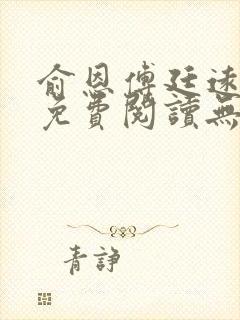 俞恩傅廷遠
免費閱讀無
青諍